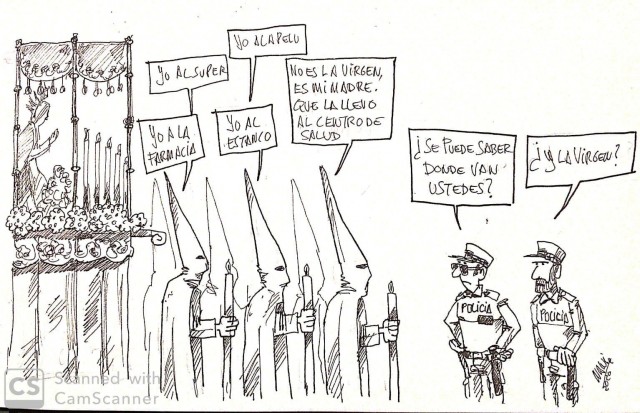 YO A LA PELU
YO AL SUPER
NO ES LA VIRGEN,
ES MI MADRE.
QUE LA LLEVO
AL CENTRO DE
SALUD
YO A LA
FARMACIA
YO AL
ESTANCO
¿SE PUEDE SABER
DONDE VAN
USTEDES?
¿Y LA VIRGEN?
POLICÍA
POLICÍA
CS Scanned with
CamScanner